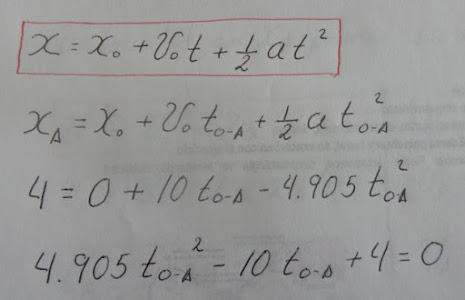 x = x₀ + v₀t + ½ at²
x_A = x₀ + v₀ t₀₋A + ½ a t₀₋A²
4 = 0 + 10 t₀₋A − 4.905 t₀A²
4.905 t₀₋A² − 10 t₀₋A + 4 = 0